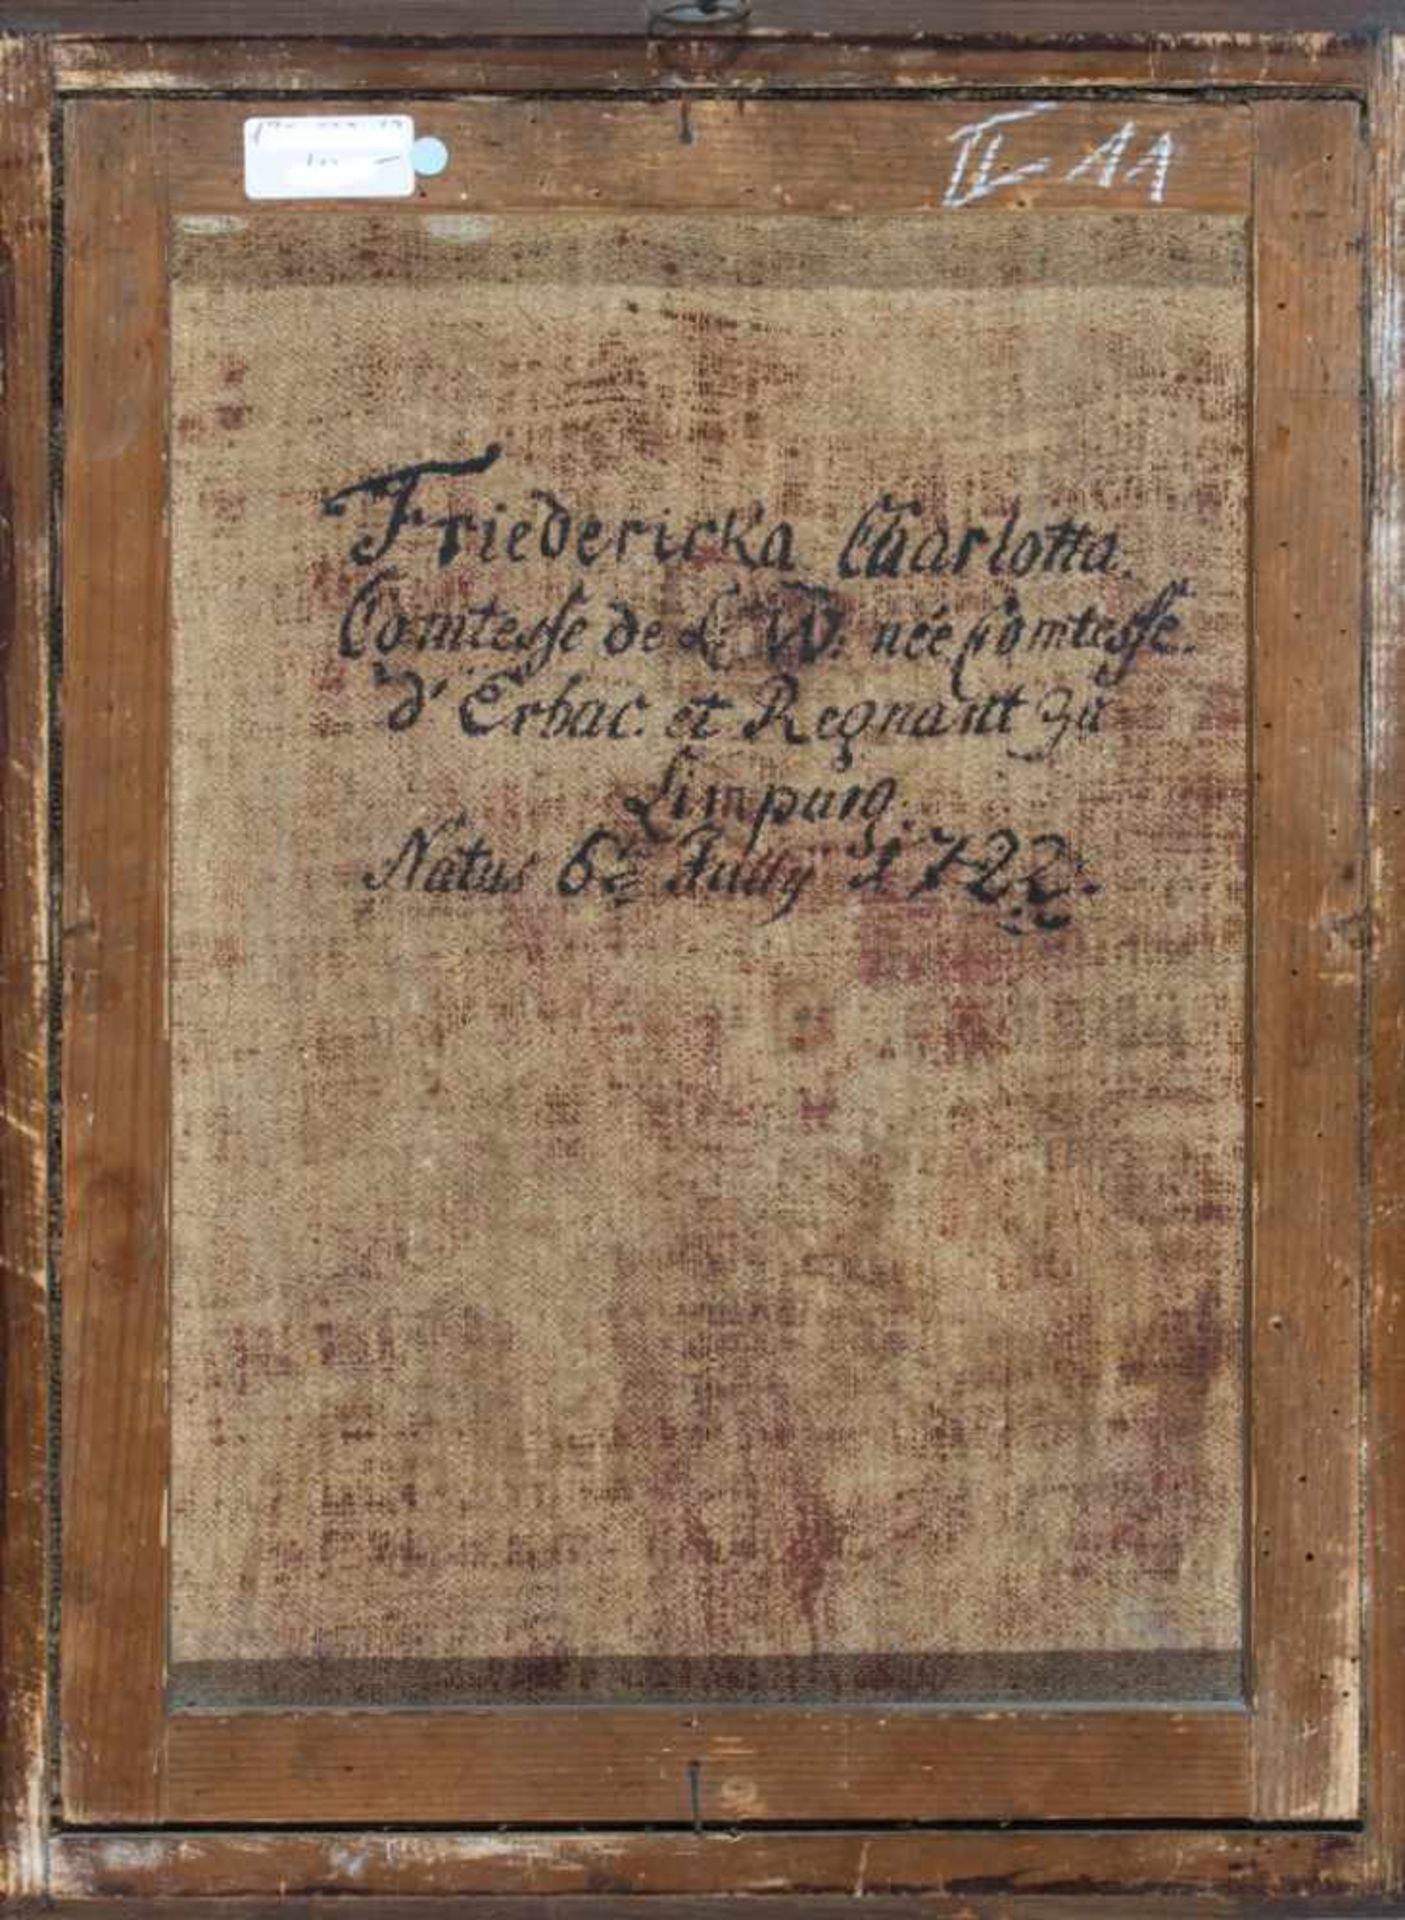 II-11
Friedericka Charlotta.
Comtesse de L: W: née Comtesse.
d'Erbac. et Regnant zu
Limpurg.
Natus 6te Jully 1722.